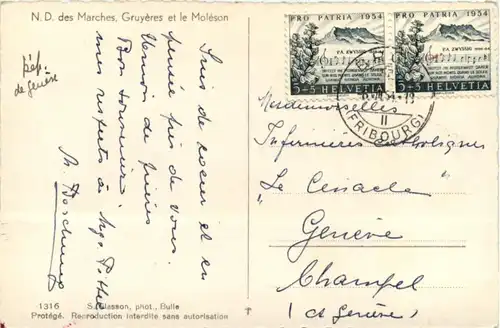 N. D. des Marches, Gruyères et le Moléson
dép.
de genève
Suis de coeur et en
pensée près de vous.
Union de prières
Bon souvenir
mes respects à Mgr
1316
S. Glasson, phot., Bulle
Protégé. Reproduction interdite sans autorisation
PRO PATRIA 1954
P.A. ZWYSSIG
5+5 HELVETIA
PRO PATRIA 1954
P.A. ZWYSSIG
5+5 HELVETIA
II
(FRIBOURG)
Mesdemoiselles
Infirmières catholiques
"Le Cénacle"
Genève
Champel
(ct Genève)